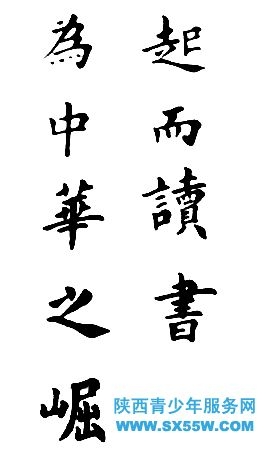 為中華之崛
起而讀書
陕西青少年服务网
WWW.SX55W.COM